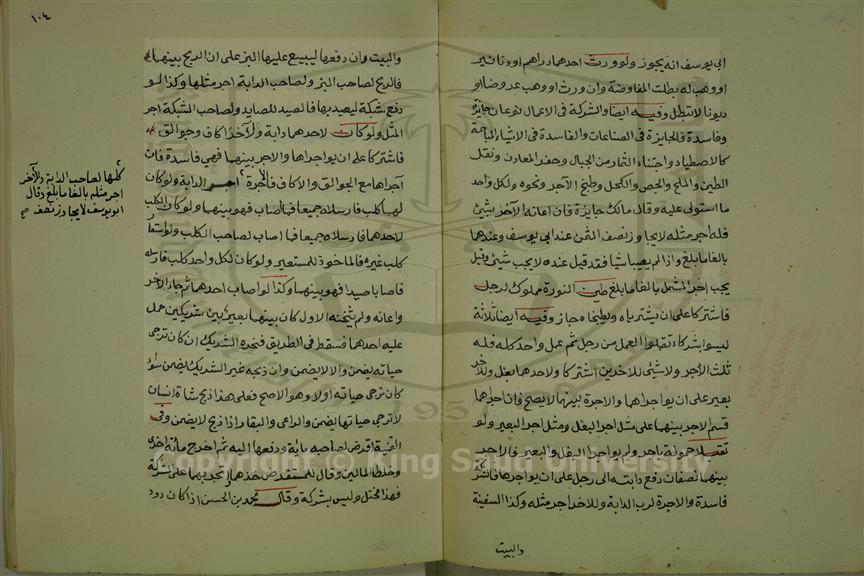 ابى يوسف انه يجوز ولو ورث احدهما دراهم او دنانير
او وهب له بطلت المفاوضة وان ورث او وهب عروضا او
ديونا لا تبطل وفيه ايضا والشركة فى الاعمال نوعان جايزة
وفاسدة فالجايزة فى الصناعات والفاسدة فى الاشياء المباحة
كالاصطياد واجتناء الثمار من الجبال وحفر المعادن ونقل
الطين والملح والجص والكحل وطبخ الآجر ونحوه ولكل واحد
ما استولى عليه وقال مالك جايزة فان اعانه الآخر بشئ
فله اجر مثله لا يجاوز نصف الثمن عند ابى يوسف وعندهما
بالغا ما بلغ واذا لم يصيبا شيا فقد قيل عنده لا يجب شئ وقيل
يجب اجر المثل بالغا ما بلغ طين النورة مملوك لرجل
فاشتركا على ان يشتريا ه ويطبخاه جاز وفيه ايضا ثلاثة
ليسوا بشركاء تقبلوا العمل من رجل ثم عمل واحد كله فله
ثلث الاجر ولا شئ للاخرين اشتركا ولاحدهما بغل وللآخر
بعير على ان يواجراها والاجرة بينهما لا يصح فان اجراهما
قسم الاجر بينهما على مثل اجر البغل ومثل اجر البعير ولو
تقبلا حمولة باجر ولم يواجرا البغل والبعير فالاجر
بينهما نصفان دفع دابته الى رجل على ان يواجرها فالشركة
فاسدة والاجرة لرب الدابة وللاخر اجر مثله وكذا السفينة
والبيت
١٠٤
والبيت وان دفعها ليبيع عليها البز على ان الربح بينهما
فالربح لصاحب البز ولصاحب الدابة اجر مثلها وكذا لو
دفع شبكة ليصيد بها فالصيد للصايد ولصاحب الشبكة اجر
المثل ولو كان لاحدهما دابة وللآخر اكاف وجوالق
فاشتركا على ان يواجراها والاجر بينهما فهي فاسدة فان
آجراها مع الجوالق والاكاف فالاجرة الدابة ولو كان
لهما كلب فارسلاه جميعا فما اصاب فهو بينهما ولو كان الكلب
لاحدهما فارسلاه جميعا فما اصاب لصاحب الكلب ولو استعار
كلب غيره فالماخوذ للمستعير ولو كان لكل واحد كلب فارسله
فاصابا صيدا فهو بينهما وكذا لو اصاب احدهما ثم جاء الآخر
واعانه ولم يثخنه الاول كان بينهما بعير بين شريكين حمل
عليه احدهما فسقط فى الطريق فنحره الشريك ان كان ترجى
حياته يضمن والا لا يضمن وان ذبحه غير الشريك يضمن سواء
كان ترجى حياته اولا وهو الاصح فعلى هذا ذبح شاة انسان
لا ترجى حياتها يضمن والراعى والبقار اذا ذبح لا يضمن وفى
القنية اقرض لصاحبه مائة ودفعها اليه ثم اخرج مائة اخرى
وخلط المالين وقال للمستقرض خذها واتجر بهما على الشركة
فهذا مختل وليس بشركة وقال محمد بن الحسن اذا كان دود
كلها لصاحب الدابة وللآخر
اجر مثله بالغا ما بلغ وقال
ابو يوسف لا يجاوز نصف
Copyright © King Saud University
1957